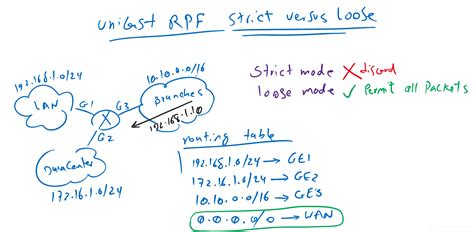 unicast RPF strict versus loose
192.168.1.0/24
10.10.0.0/16
LAN
G1
G3
Branches
192.168.1.10
X
G2
DataCenter
172.16.1.0/24
Strict mode X discard
loose mode ✓ Permit all Packets
routing table
192.168.1.0/24 → GE1
172.16.1.0/24 → GE2
10.10.0.0/16 → GE3
0.0.0.0/0 → WAN